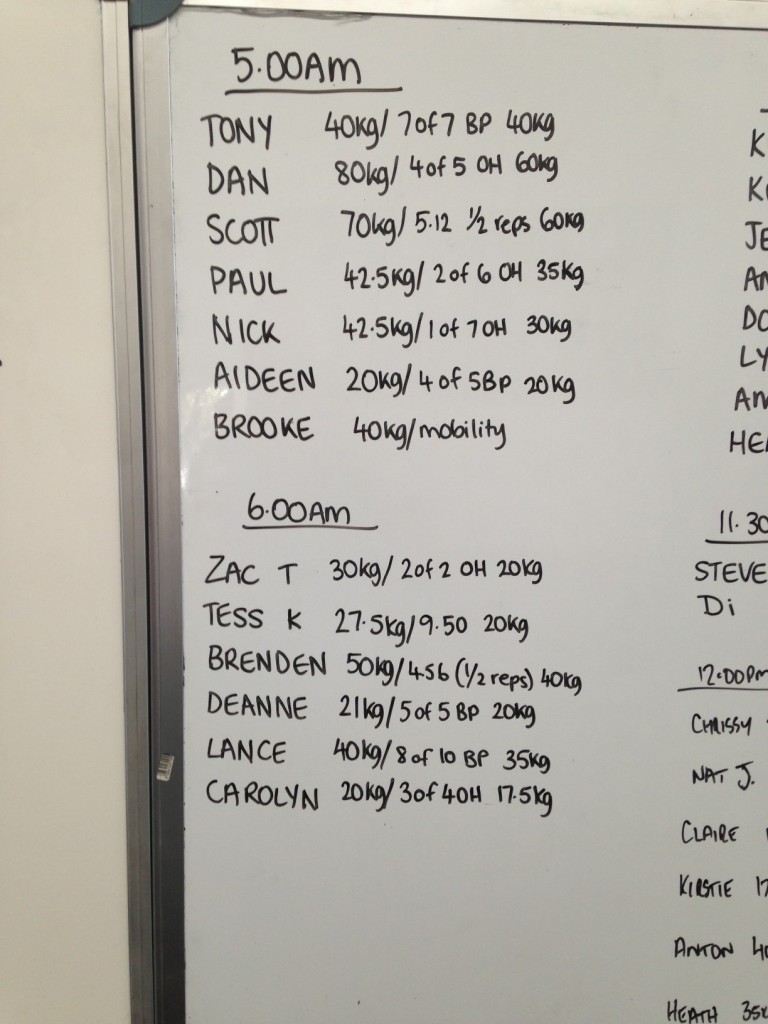 5.00AM
TONY 40kg/ 7of7 BP 40kg
DAN 80kg/ 4of5 OH 60kg
SCOTT 70kg/ 5.12 1/2 reps 60kg
PAUL 42.5kg/ 2 of 6 OH 35kg
NICK 42.5kg/1 of 7 OH 30kg
AIDEEN 20kg/ 4 of 5BP 20kg
BROOKE 40kg/mobility
6.00AM
ZAC T 30kg/ 2of2 OH 20kg
TESS K 27.5kg/9.50 20kg
BRENDEN 50kg/4.56 (1/2 reps) 40kg
DEANNE 21kg/5 of 5 BP 20kg
LANCE 40kg/8 of 10 BP 35kg
CAROLYN 20kg/3of 4OH 17.5kg
K
JE
AN
DO
LY
HE
11.30
STEVE
Di
12.00PM
CHRISSY
NAT J.
CLAIRE
KIRSTIE 17
ANTON 40
HEATH 35k